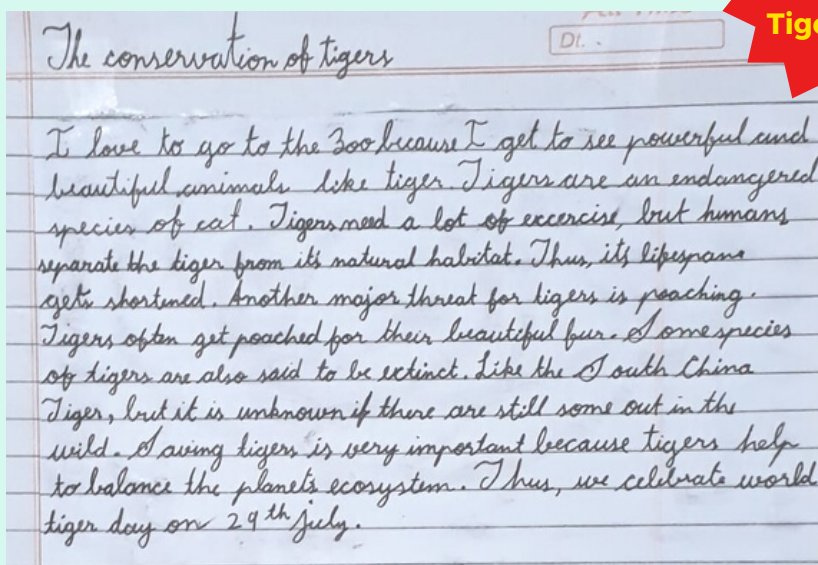 The conservation of tigers
Dt. .
I love to go to the zoo because I get to see powerful and
beautiful animals like tiger. Tigers are an endangered
species of cat. Tigers need a lot of excercise, but humans
separate the tiger from its natural habitat. Thus, its lifespan
gets shortened. Another major threat for tigers is poaching.
Tigers often get poached for their beautiful fur. Some species
of tigers are also said to be extinct. Like the South China
Tiger, but it is unknown if there are still some out in the
wild. Saving tigers is very important because tigers help
to balance the planets ecosystem. Thus, we celebrate world
tiger day on 29th july.